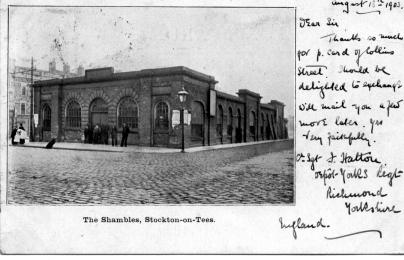 August 18th 1903.
Dear Sir
Thanks so much
for p. card of Collins
Street. Should be
delighted to exchange
Will mail you a few
more later. yrs
Very faithfully.
Sgt J. Hatton
Depôt Yorks Regt
Richmond
Yorkshire
England.
The Shambles, Stockton-on-Tees.